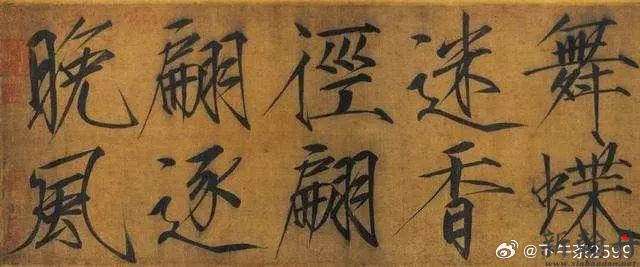 舞蝶
迷香
徑翩
翩逐
晚風
@下午茶2599